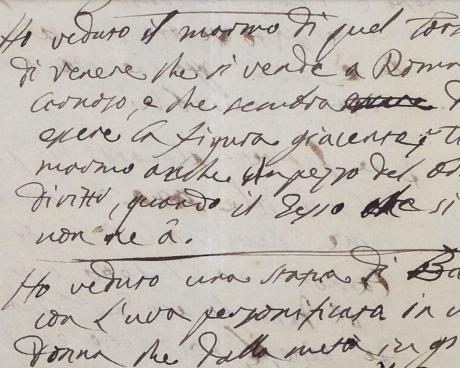 Ho veduto il marmo di quel Tors
di venere che si vende a Roma
Cornoso, e che sembra
essere la figura giacente,
marmo anche un pezzo del
diritto, quando il Gesso che si
non ne à.
Ho veduto una statua di Ba
con l'uva personificata in
Donna che dalla metà in